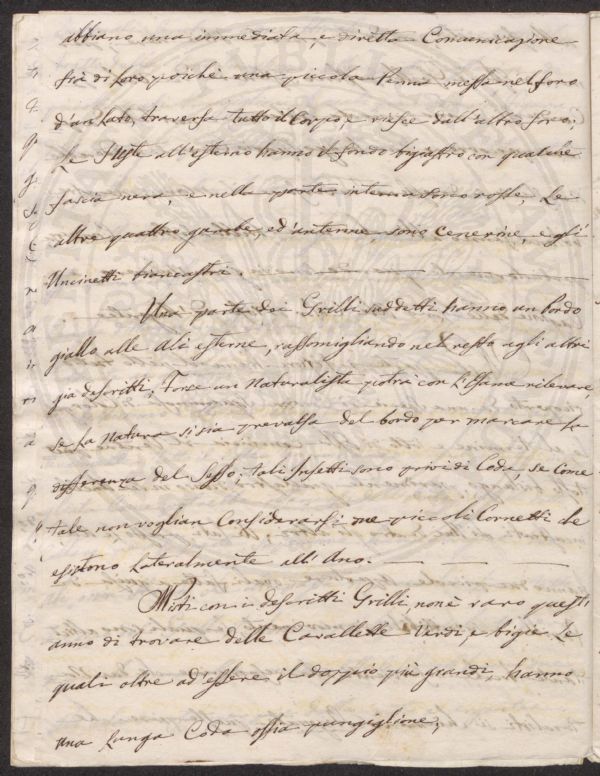 abbiano una immediata, e diretta Comunicazione
frà di Loro poichè una piccola Penna messa nel foro
d'un Lato, traversa tutto il Corpo, e riesce dall'altro foro;
Le Teste all'esterno hanno il fondo bigiastro con qualche
fascia nera, e nella parte interna sono rosse, Le
altre quattro gambe, ed'antenne, sono Cenerine, e gli
Uncinetti biancastri.
Una Parte dei Grilli suddetti hanno un bordo
giallo alle Ali esterne, rassomigliando nel resto agli altri
già descritti, Forse un Naturalista potrà con L'Esame rilevare,
se La Natura si sia prevalsa del bordo per marcare La
differenza del Sesso; tali Insetti sono privi di Coda, se come
tale non voglian Considerarsi ne piccoli Cornetti che
esistono Lateralmente all'Ano.
Misti con i descritti Grilli, non è raro quest'
anno di trovare delle Cavallette Verdi, e bigie Le
quali oltre ad'essere il doppio più grandi, hanno
una Lunga Coda ossia pungiglione,